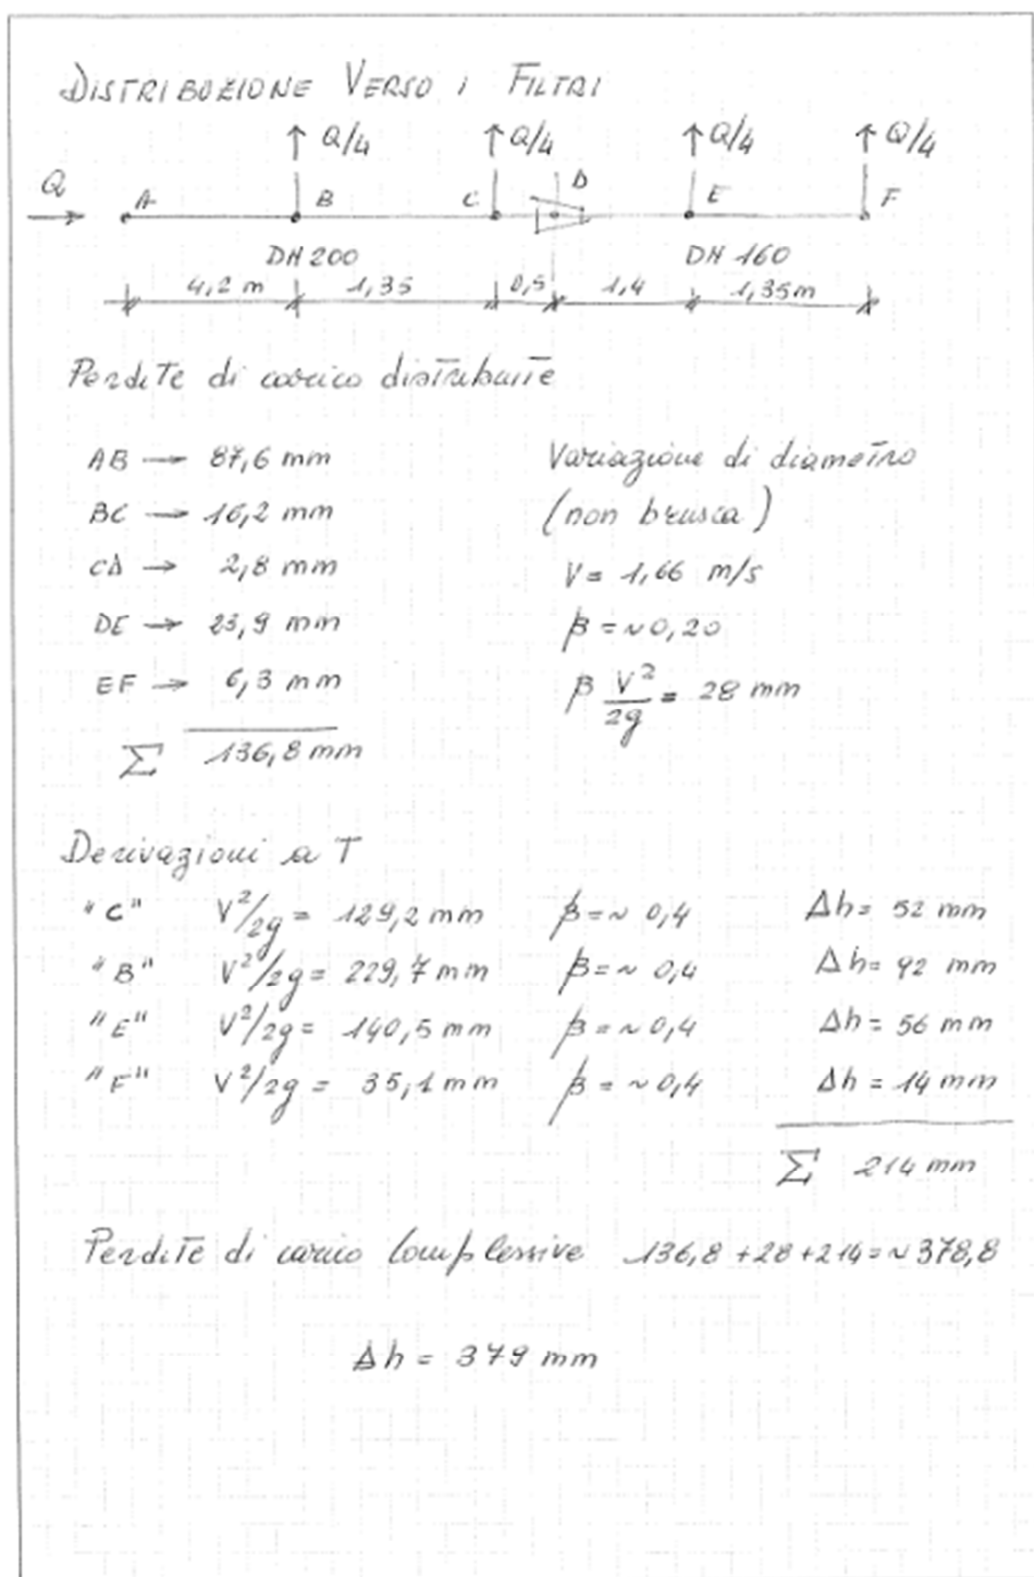 DISTRIBUZIONE VERSO I FILTRI
Q/4 Q/4 Q/4 Q/4
Q A B C D E F
DN 200 DN 160
4,2 m 1,35 0,5 1,4 1,35m
Perdite di carico distribuite
AB → 87,6 mm
BC → 16,2 mm
CD → 2,8 mm
DE → 23,9 mm
EF → 6,3 mm
Σ 136,8 mm
Variazione di diametro
(non brusca)
V = 1,66 m/s
β = ~0,20
β V²/2g = 28 mm
Derivazioni a T
"C" V²/2g = 129,2 mm β = ~ 0,4 Δh = 52 mm
"B" V²/2g = 229,7 mm β = ~ 0,4 Δh = 92 mm
"E" V²/2g = 140,5 mm β = ~ 0,4 Δh = 56 mm
"F" V²/2g = 35,1 mm β = ~ 0,4 Δh = 14 mm
Σ 214 mm
Perdite di carico complessive 136,8 + 28 + 214 = ~ 378,8
Δh = 379 mm